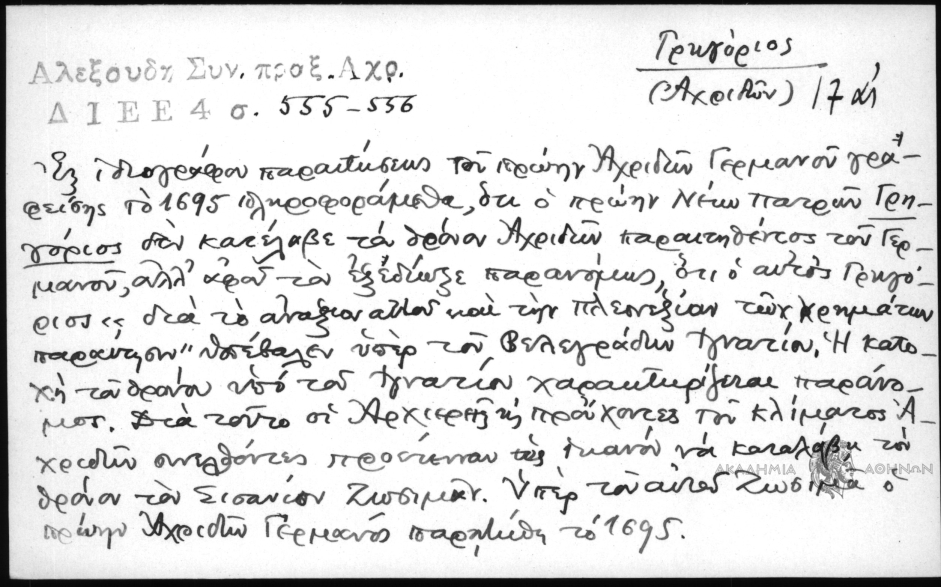 Γρηγόριος
(Ἀχριδῶν) 17 αἰ
Αλεξουδη Συν. πραξ. Αχρ.
ΔΙΕΕ 4 σ. 555-556
Ἐξ ἰδιογράφου παραιτήσεως τοῦ πρώην Ἀχριδῶν Γερμανοῦ γρα-
φείσης τὸ 1695 πληροφορούμεθα, ὅτι ὁ πρώην Νέων Πατρῶν Γρη-
γόριος δὲν κατέλαβε τὸν θρόνον Ἀχριδῶν παραιτηθέντος τοῦ Γερ-
μανοῦ, ἀλλ' ἀφοῦ τὸν ἐξεδίωξε παρανόμως, ὅτι ὁ αὐτὸς Γρηγό-
ριος "διὰ τὸ ἀνάξιον αὐτοῦ καὶ τὴν πλεονεξίαν τῶν χρημάτων
παραίτησιν" ὑπέβαλεν ὑπὲρ τοῦ Βελεγράδων Ἰγνατίου. Ἡ κατο-
χὴ τοῦ θρόνου ὑπὸ τοῦ Ἰγνατίου χαρακτηρίζεται παράνο-
μος. Διὰ τοῦτο οἱ Ἀρχιερεῖς προὔχοντες τοῦ κλίματος Ἀ-
χριδῶν συνελθόντες προέτειναν ὡς ἱκανὸν νὰ καταλάβῃ τὸν
θρόνον τὸν Σισανίου Ζωσιμᾶν. Ὑπὲρ τοῦ αὐτοῦ Ζωσιμᾶ ὁ
πρώην Ἀχριδῶν Γερμανὸς παρῃτήθη τὸ 1695.
ΑΚΑΔΗΜΙΑ ΑΘΗΝΩΝ